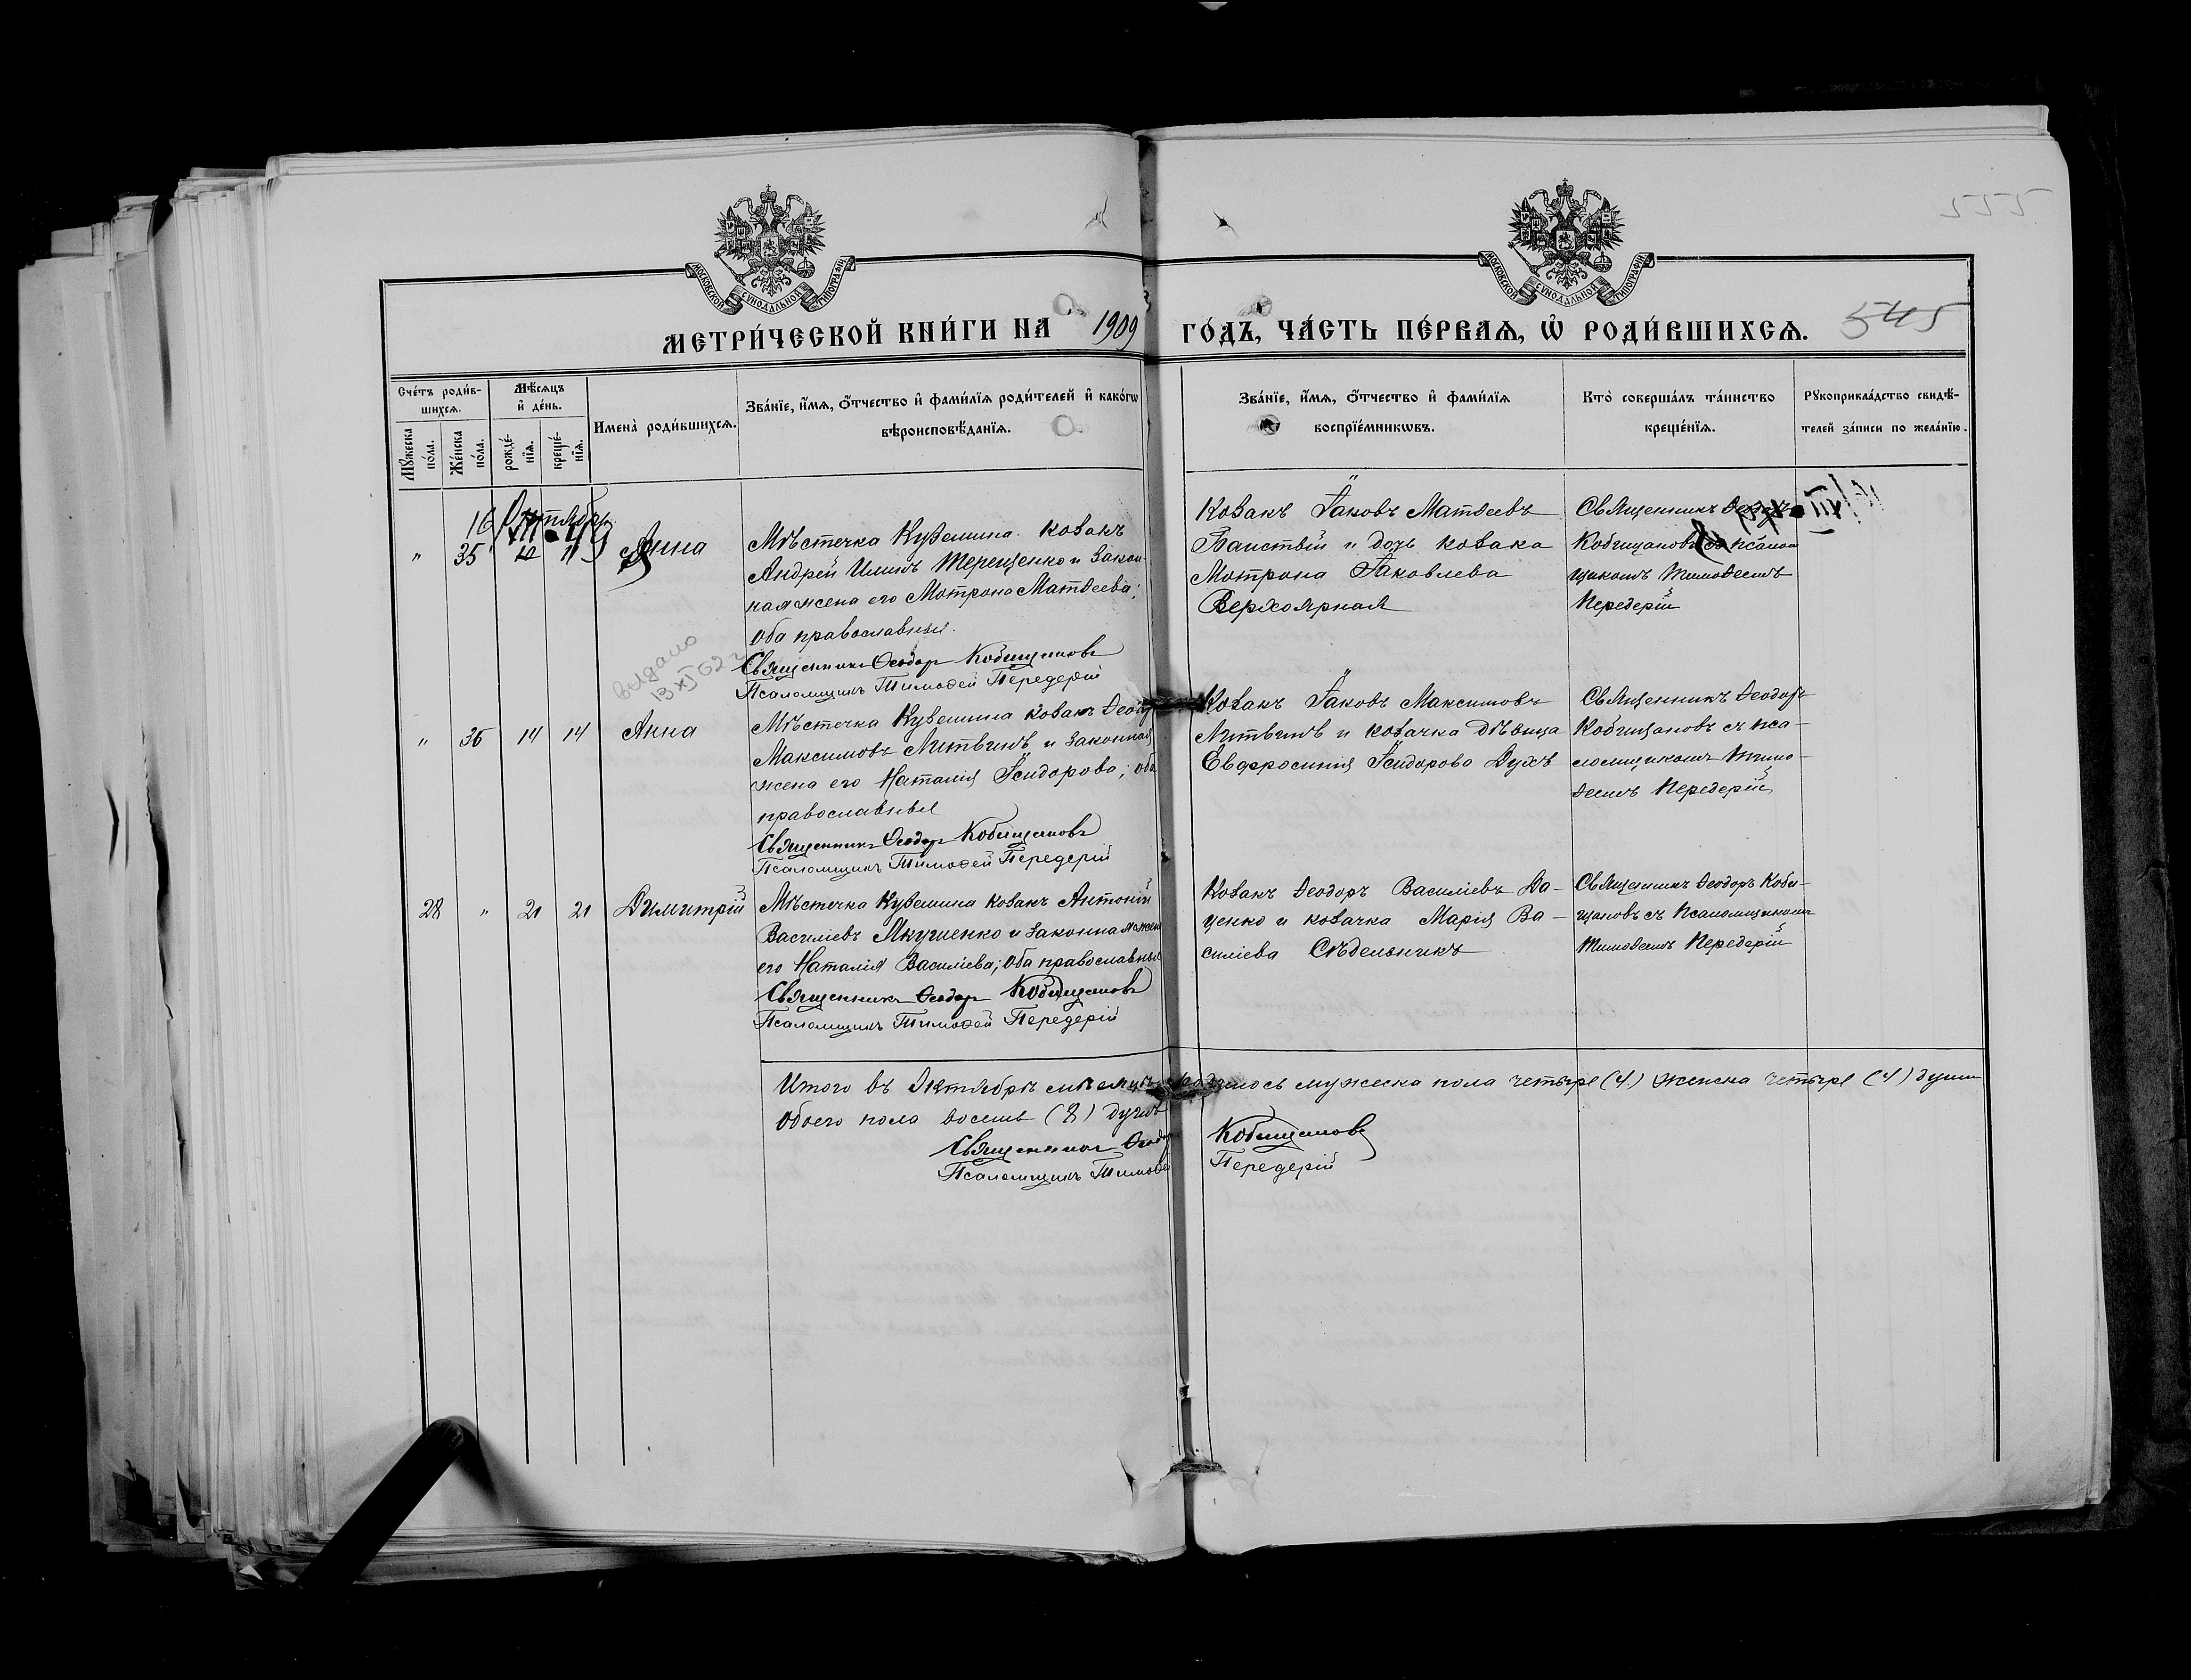 555
МОСКОВСКОЙ СѴНОДАЛЬНОЙ ТИПОГРАФІИ
МОСКОВСКОЙ СѴНОДАЛЬНОЙ ТИПОГРАФІИ
МЕТРИ́ЧЕСКОЙ КНИ́ГИ НА 1909 ГО́ДЪ, ЧА́СТЬ ПЕ́РВАѦ, Ѽ РОДИ́ВШИХСѦ.
545
Сче́тъ роди́в-
шихсѧ.
Мѣ́сѧцъ
и҆ де́нь.
Мꙋ́жеска
по́ла.
Же́нска
по́ла.
рожде́-
нїѧ.
креще́-
нїѧ.
Имена̀ роди́вшихсѧ.
Зва́нїе, и҆́мѧ, ѻ҆́тчество и҆ фами́лїѧ роди́телей и҆ како́гѡ
вѣроисповѣ́данїѧ.
Зва́нїе, и҆́мѧ, ѻ҆́тчество и҆ фами́лїѧ
воспрїе́мникѡвъ.
Кто̀ соверша́лъ та́инство
креще́нїѧ.
Рꙋкоприкла́дство свидѣ́-
телей за́писи по жела́нїю.
Октябрь
" 35 Анна
Мѣстечка Куземина козакъ
Андрей Терещенко и закон-
ная жена его Мотрона Матѳеева;
оба православныи.
Священникъ Ѳеодоръ Кобищановъ
Псаломщикъ Тимоѳей Передерій
Козакъ Іаковъ Матѳеевъ
и дочь козака
Мотрона Іаковлева
Верхоярная
Священникъ
Кобищановъ съ псалом
щикомъ Тимоѳеемъ
Передерій
выдано
" 36 14 14 Анна
Мѣстечка Куземина козакъ Ѳеодоръ
Максимовъ Литвинъ и законная
жена его Наталія Ісидорова; оба
православныя
Священникъ Ѳеодоръ Кобищановъ
Псаломщикъ Тимоѳей Передерій
Козакъ Іаковъ Максимовъ
Литвинъ и козачка дѣвица
Евфросинія Ісидорова Духъ
Священникъ Ѳеодоръ
Кобищановъ съ пса-
ломщикомъ Тимо-
ѳеемъ Передерій
28 " 21 21 Димитрій
Мѣстечка Куземина козакъ Антоній
Василіевъ Якушенко и законная жена
его Наталія Василіева; оба православныи
Священникъ Ѳеодоръ Кобищановъ
Псаломщикъ Тимоѳей Передерій
Козакъ Ѳеодоръ Василіевъ Да-
ценко и козачка Марія Ва-
силіева Сѣдельникъ
Священникъ Ѳеодоръ Коби-
щановъ съ псаломщикомъ
Тимоѳеемъ Передерій
Итого въ Октябрѣ мѣсяцѣ родилось мужеска пола четыре (4) женска четыре (4) души
обоего пола восемь (8) душъ
Священникъ Ѳеодоръ Кобищановъ
Псаломщикъ Тимоѳей Передерій